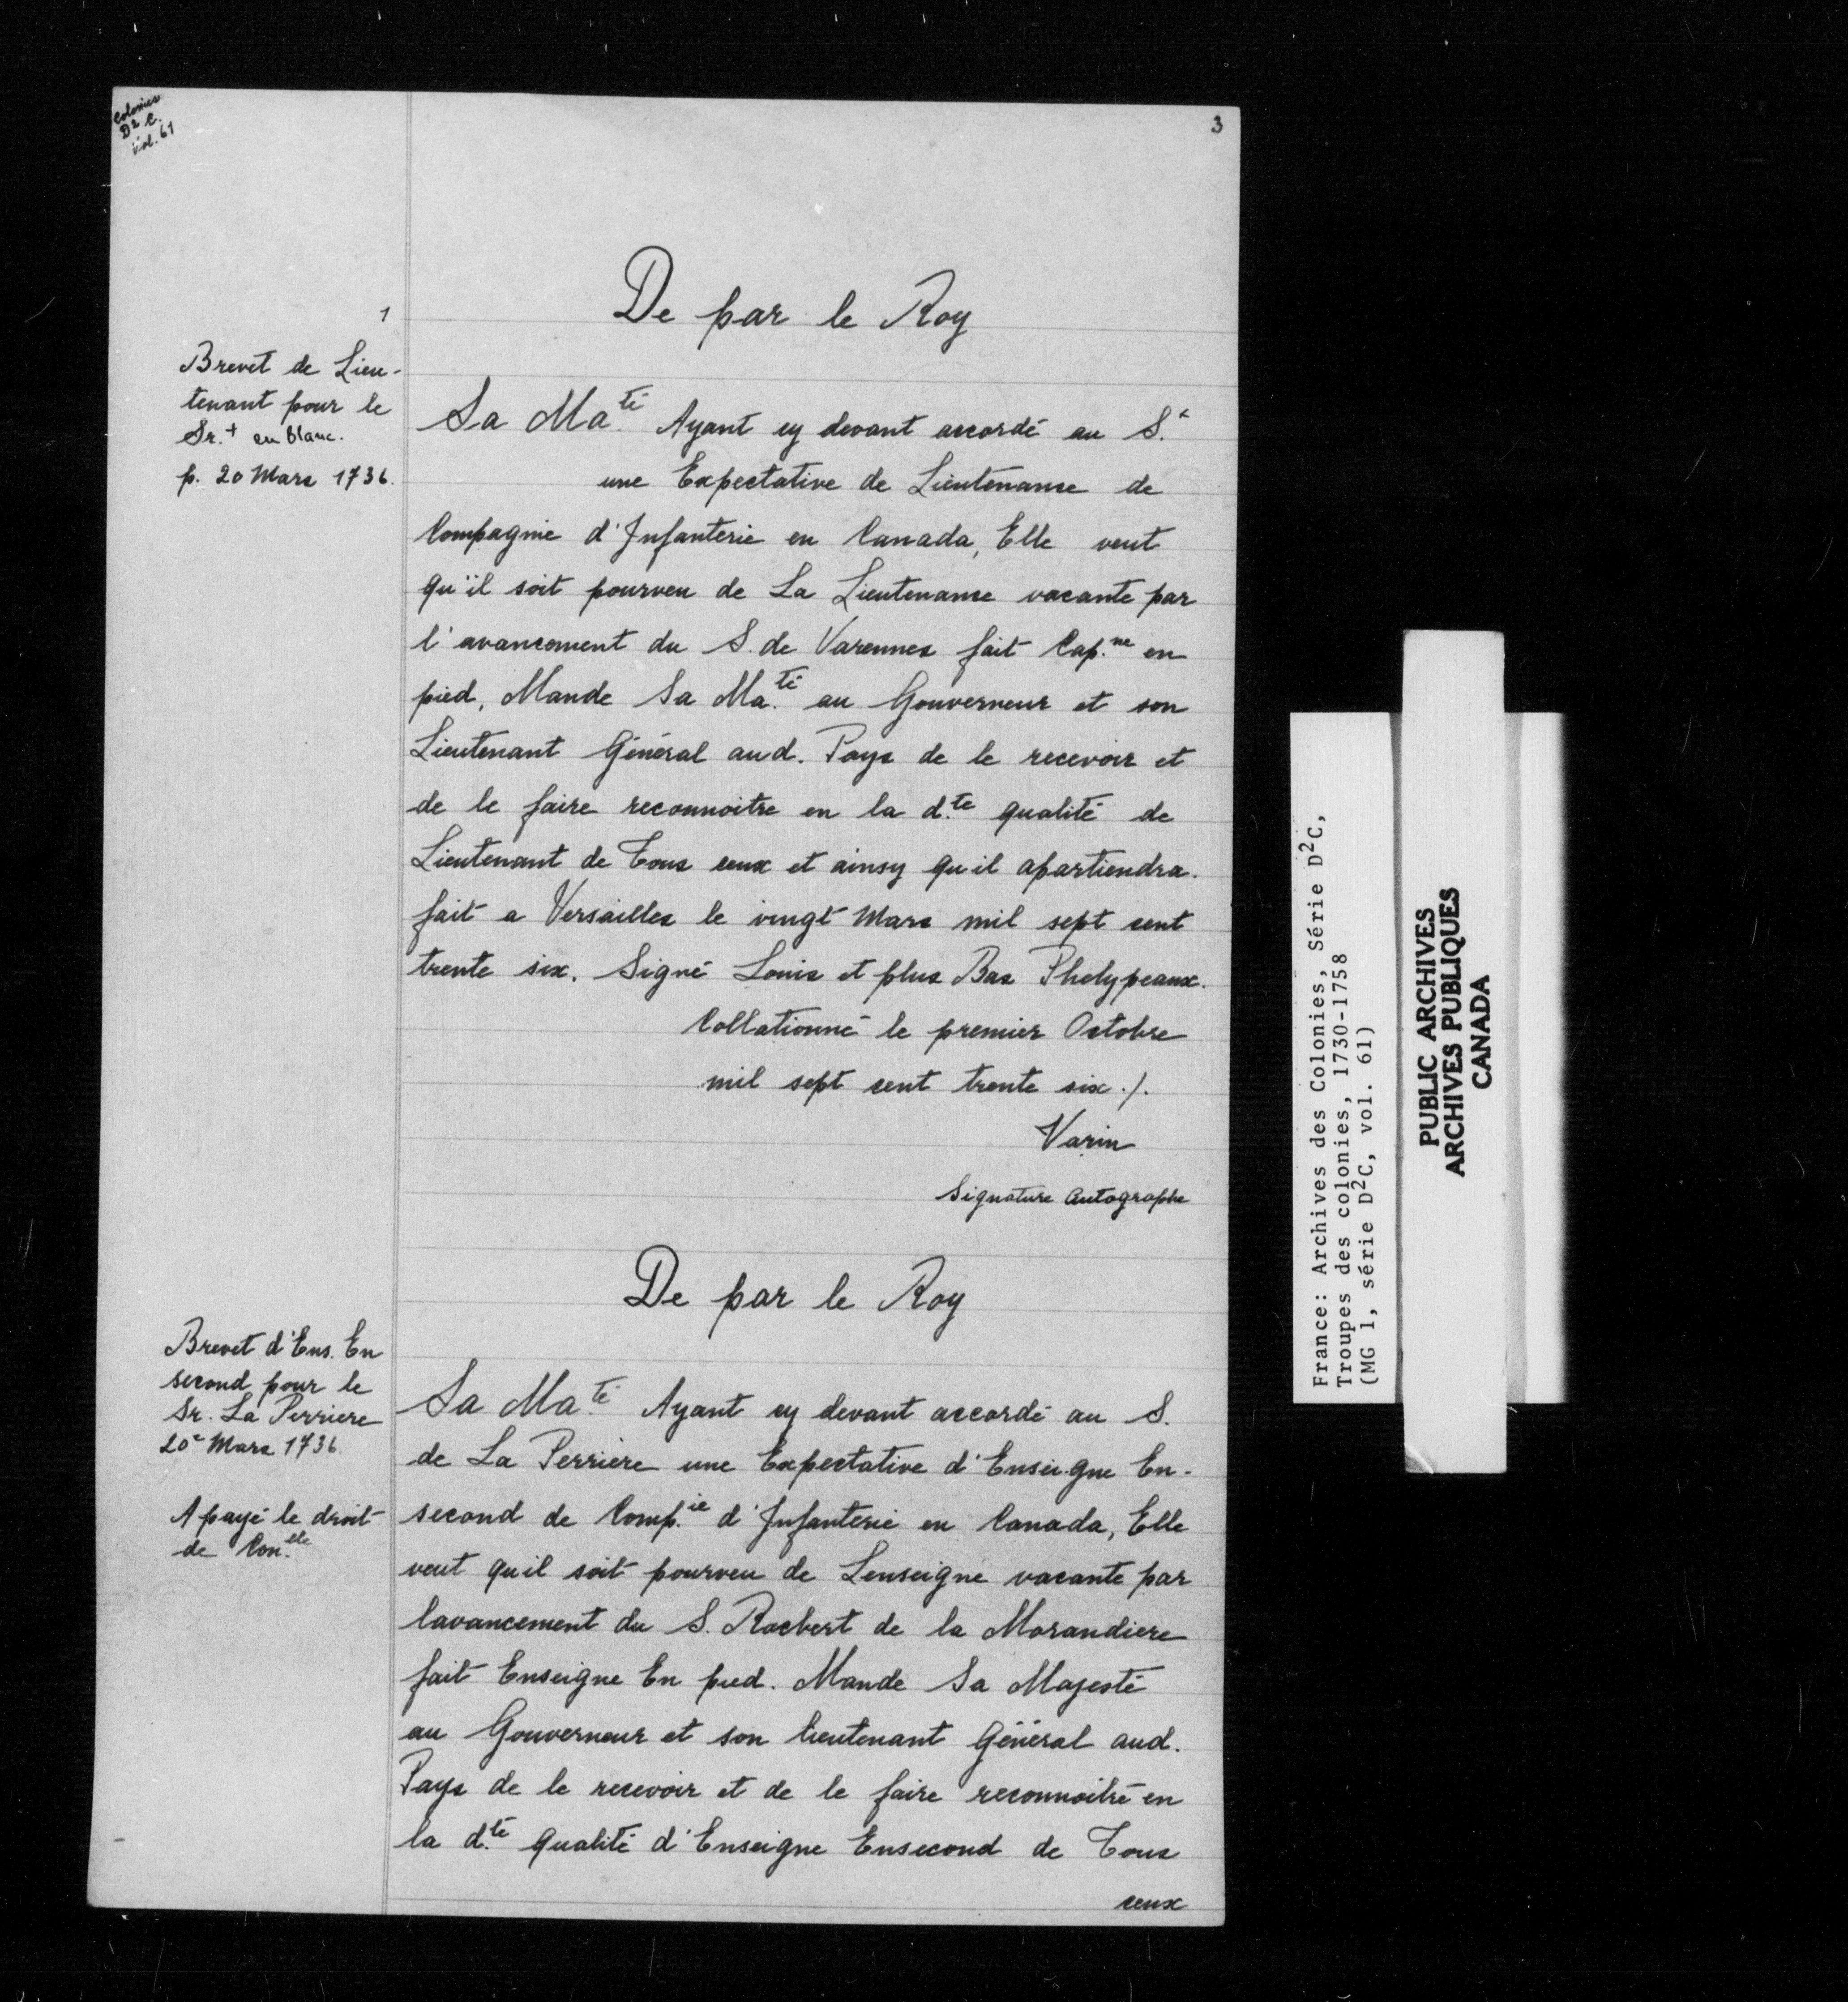 Colonies
D2 C.
vol. 61
3
De par le Roy
1
Brevet de Lieu-
tenant pour le
Sr. + en blanc.
p. 20 Mars 1736.
Sa Ma.té Ayant cy devant accordé au S.r
une Expectative de Lieutenance de
Compagnie d'Infanterie en Canada, Elle veut
qu'il soit pourveu de La Lieutenance vacante par
l'avancement du S. de Varennes fait Cap.ne en
pied, Mande Sa Ma.té au Gouverneur et son
Lieutenant Général aud. Pays de le recevoir et
de le faire reconnoitre en la d.te qualité de
Lieutenant de Tous ceux et ainsy qu'il apartiendra.
fait a Versailles le vingt Mars mil sept cent
trente six. Signé Louis et plus Bas Phelypeaux.
Collationné le premier Octobre
mil sept cent trente six ./.
Varin
Signature Autographe
De par le Roy
Brevet d'Ens. En
second pour le
Sr. La Perriere
20e Mars 1736.
A payé le droit
de Con.elle
Sa Ma.té Ayant cy devant accordé au S.
de La Perriere une Expectative d'Enseigne En-
second de Comp.ie d'Infanterie en Canada, Elle
veut quil soit pourveu de Lenseigne vacante par
lavancement du S. Rocbert de la Morandiere
fait Enseigne En pied. Mande Sa Majesté
au Gouverneur et son lieutenant Général aud.
Pays de le recevoir et de le faire reconnoitre en
la d.te qualité d'Enseigne Ensecond de Tous
ceux
France: Archives des Colonies, Série D2C,
Troupes des colonies, 1730-1758
(MG 1, série D2C, vol. 61)
PUBLIC ARCHIVES
ARCHIVES PUBLIQUES
CANADA